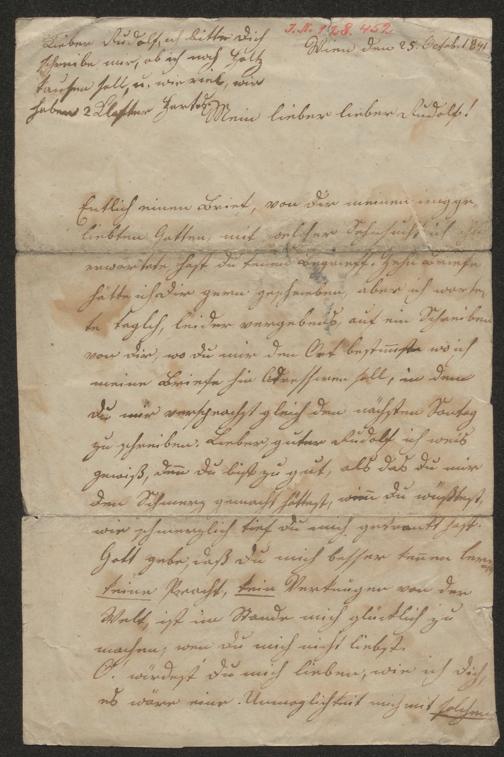 I. N. 128.452
Lieber Rudolf, ich bitte dich
schreibe mir, ob ich noch Holz
kaufen soll, u. wie viel, wir
haben 2 Klafter hartes.
Wien den 25. October 1841
Mein lieber lieber Rudolf!
Entlich einen Brief, von dir meinen ungge-
liebten Gatten, mit welcher Sehnsucht ich ihn
erwartete hast du keinen Begrieff. Zehn Briefe
hätte ich dir gern geschrieben, aber ich warte-
te täglich, leider vergebens, auf ein Schreiben
von dir, wo du mir den Ort bestimmtest wo ich
meine Briefe hin Adressiren soll, in dem
du mir verschprachst gleich den nächsten Sontag
zu schreiben. Lieber guter Rudolf ich weis
gewiß, denn du bist zu gut, als das du mir
den Schmerz gemacht hättest, wenn du wüßtest,
wie schmerzlich tief du mich gekränkt hast.
Gott gebe, daß du mich besser kennen lernst
keine Pracht, kein Vertnügen von der
Welt, ist im Stande mich glücklich zu
machen, wen du mich nicht liebst.
O, würdest du mich lieben, wie ich dich,
es wäre eine Unmöglichkeit mich mit solchen